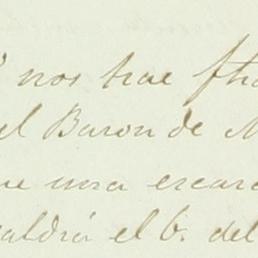 nos trae
el Baron de
una escar
aldrá el b. del